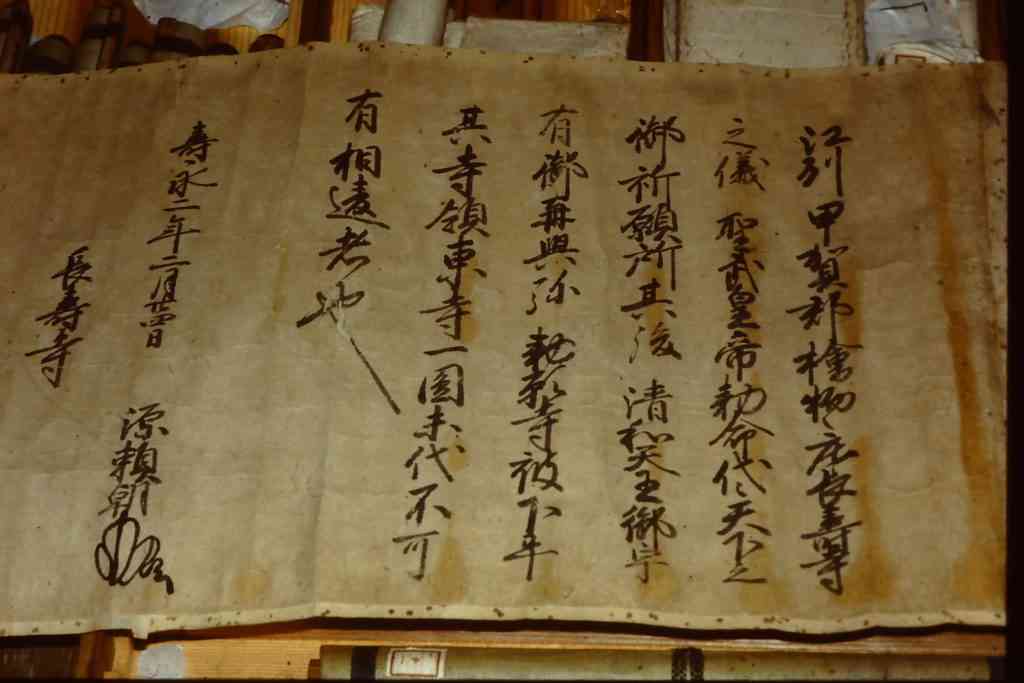 江州甲賀郡檜物庄長寿寺
之儀聖武皇帝勅命代々天下之
御祈願所其後清和天王御宇
有御再興弥勅願寺被下年
其寺領東寺一圓末代不可
有相違者也
寿永二年二月廿四日
源頼朝
長寿寺